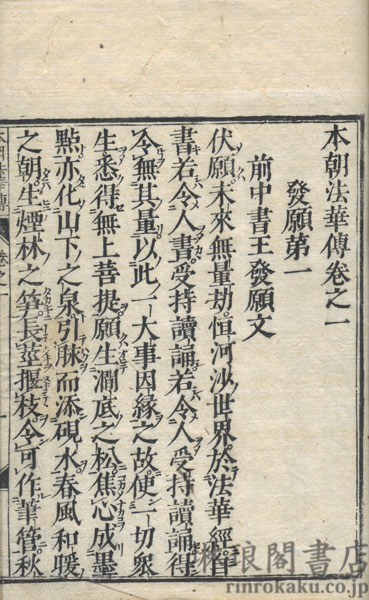 本朝法華傳卷之一
發願第一
前中書王發願文
伏願未來無量劫恒河沙世界於法華經自
書若令人書受持讀誦若令人受持讀誦得
令無其量以此一大事因緣之故使一切衆
生悉得無上菩提願生澗底之松焦心成墨
點亦化山下之泉引脉而添硯水春風和暖
之朝生煙林之筍長莖揠枝令可作筆管秋
琳琅閣書店
rinrokaku.co.jp